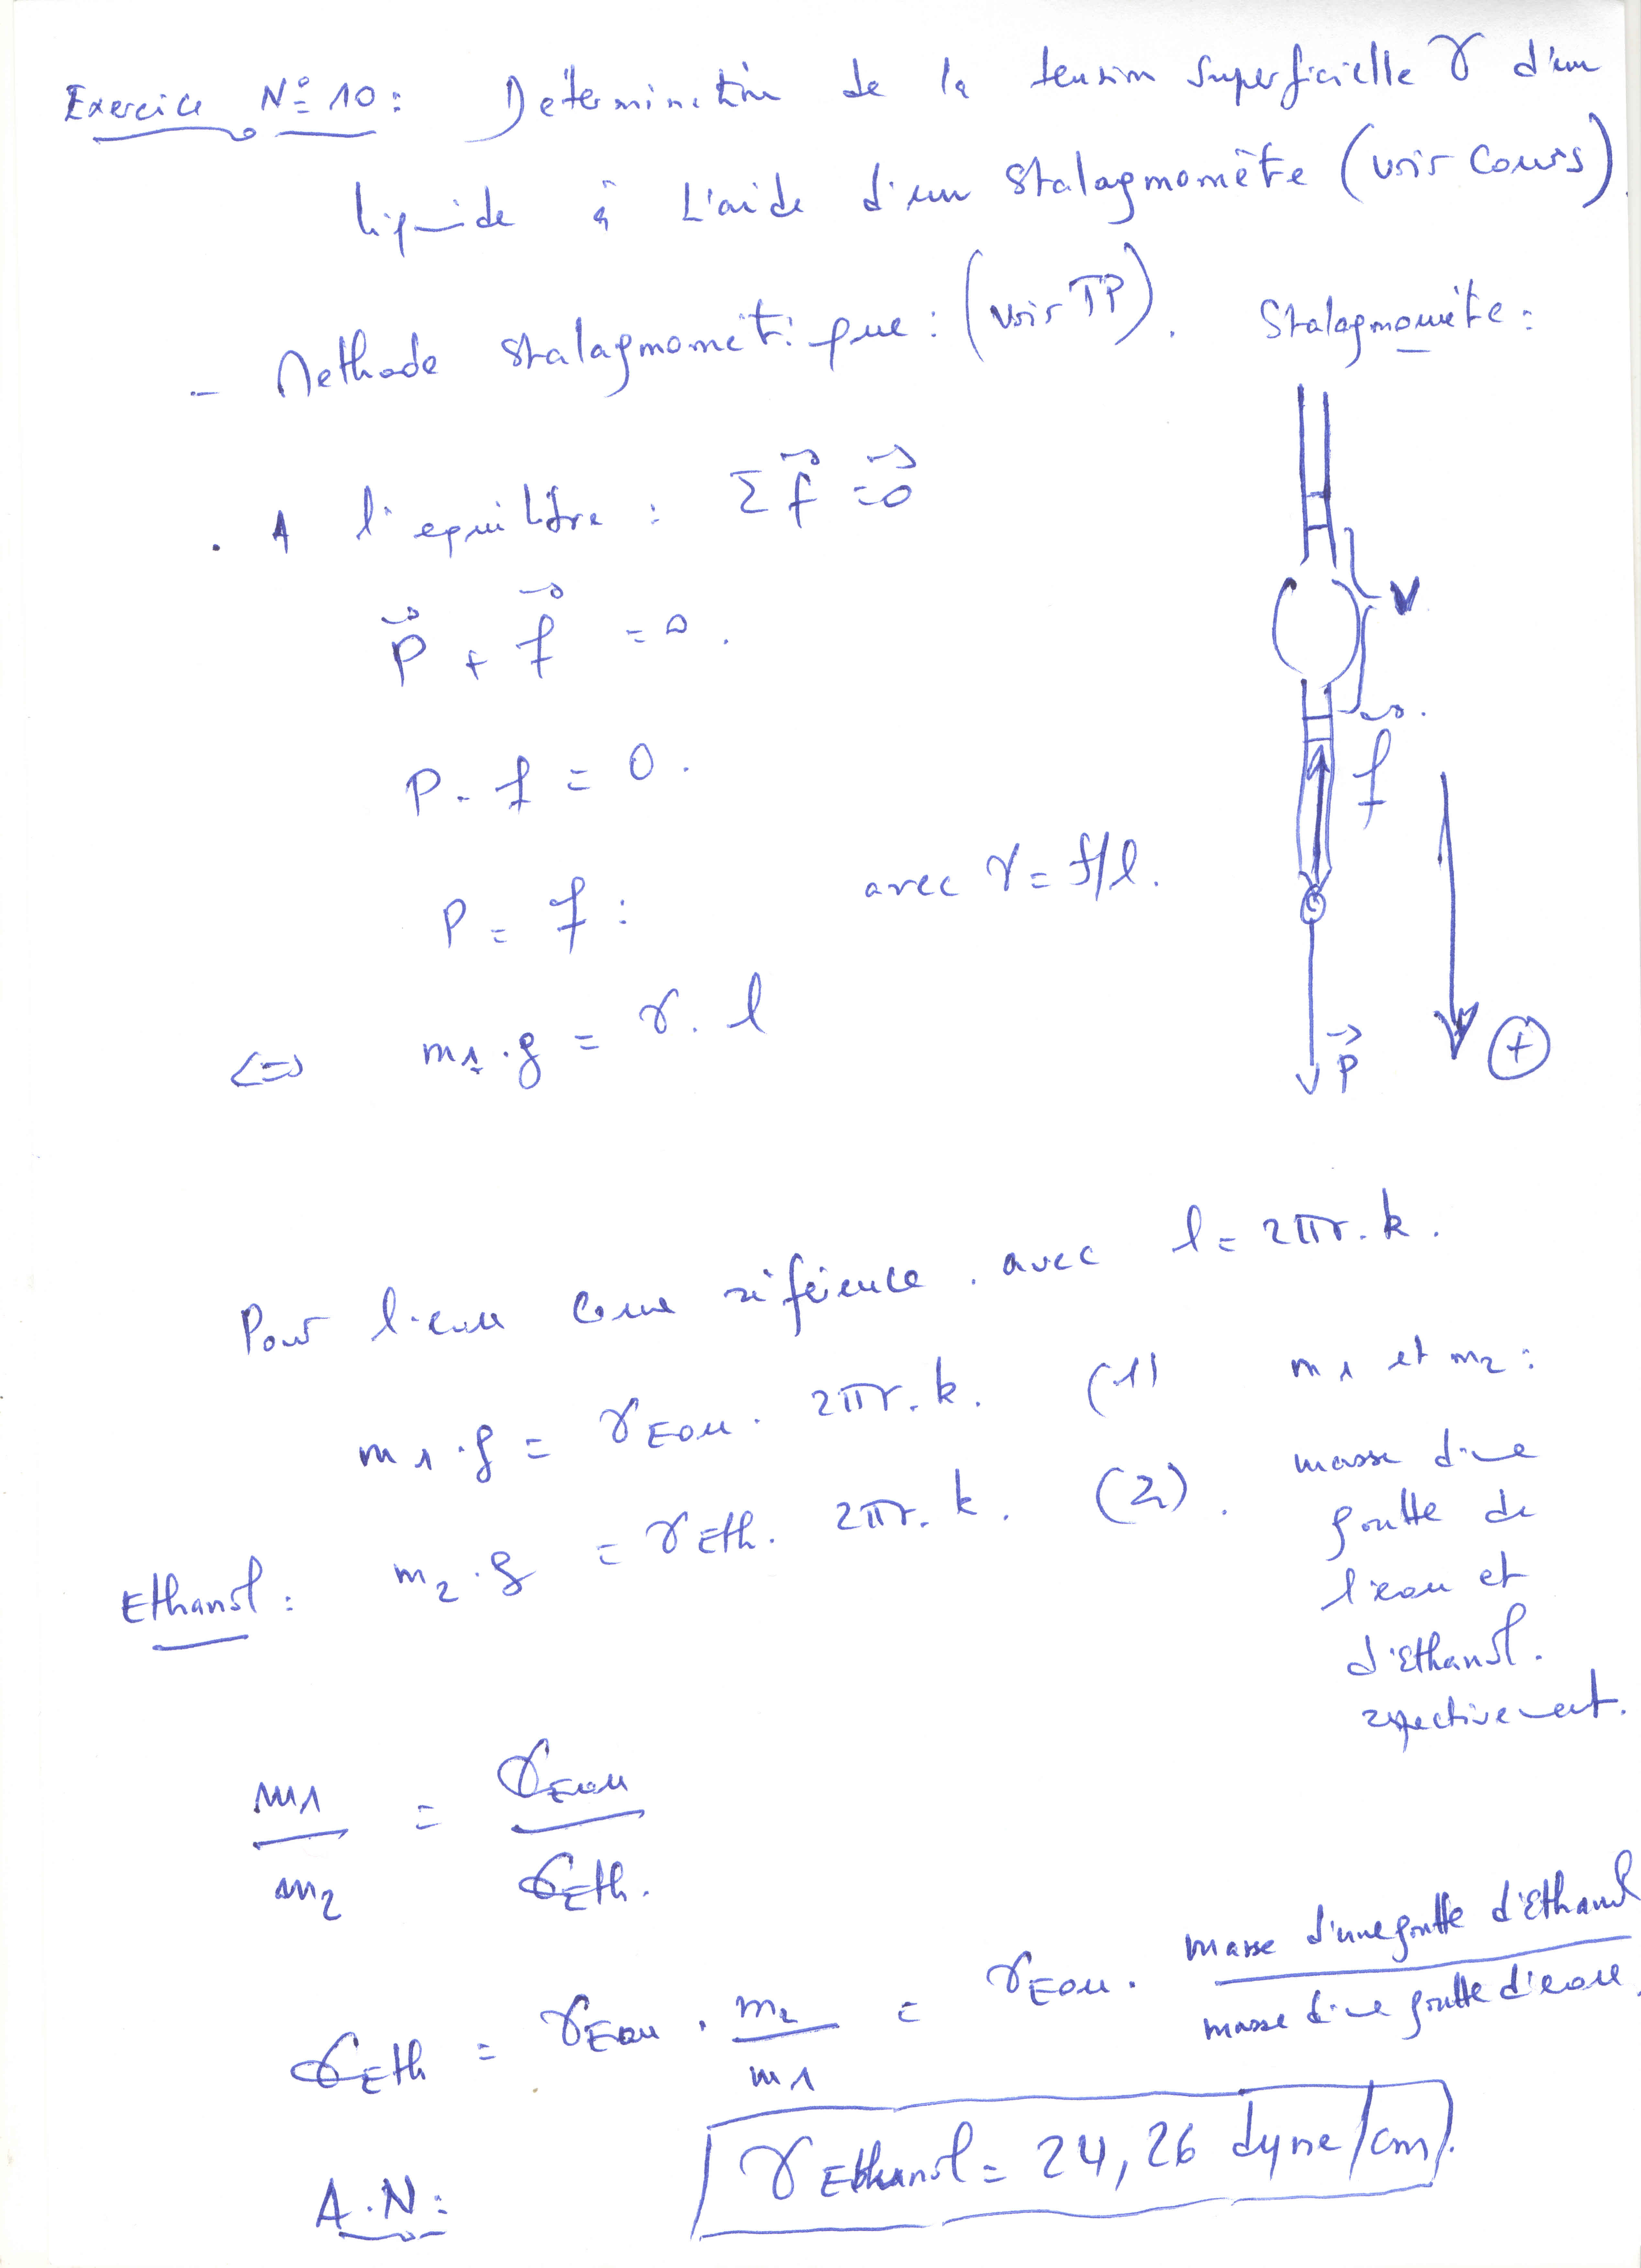 Exercice N° 10 : Détermination de la tension superficielle γ d'un
liquide à L'aide d'un stalagmomètre (voir cours).
- Methode stalagmometrique : (voir TP). Stalagmomètre :
. A l'equilibre : Σ f⃗ = 0⃗
V
P⃗ + f⃗ = 0 .
P - f = 0 .
f⃗
P = f : avec γ = f/l.
<=> m1 . g = γ . l
P⃗ +
Pour l'eau comme référence . avec l = 2πr . k .
m1 . g = γEau . 2πr . k . (1) m1 et m2 :
Ethanol : m2 . g = γEth . 2πr . k . (2) . masse d'une
goutte de
l'eau et
d'Ethanol.
respectivement.
m1/m2 = γEau/γEth.
γEth = γEau . m2/m1 = γEau . masse d'une goutte d'Ethanol/masse d'une goutte d'eau.
A.N : γEthanol = 24,26 dyne/cm.